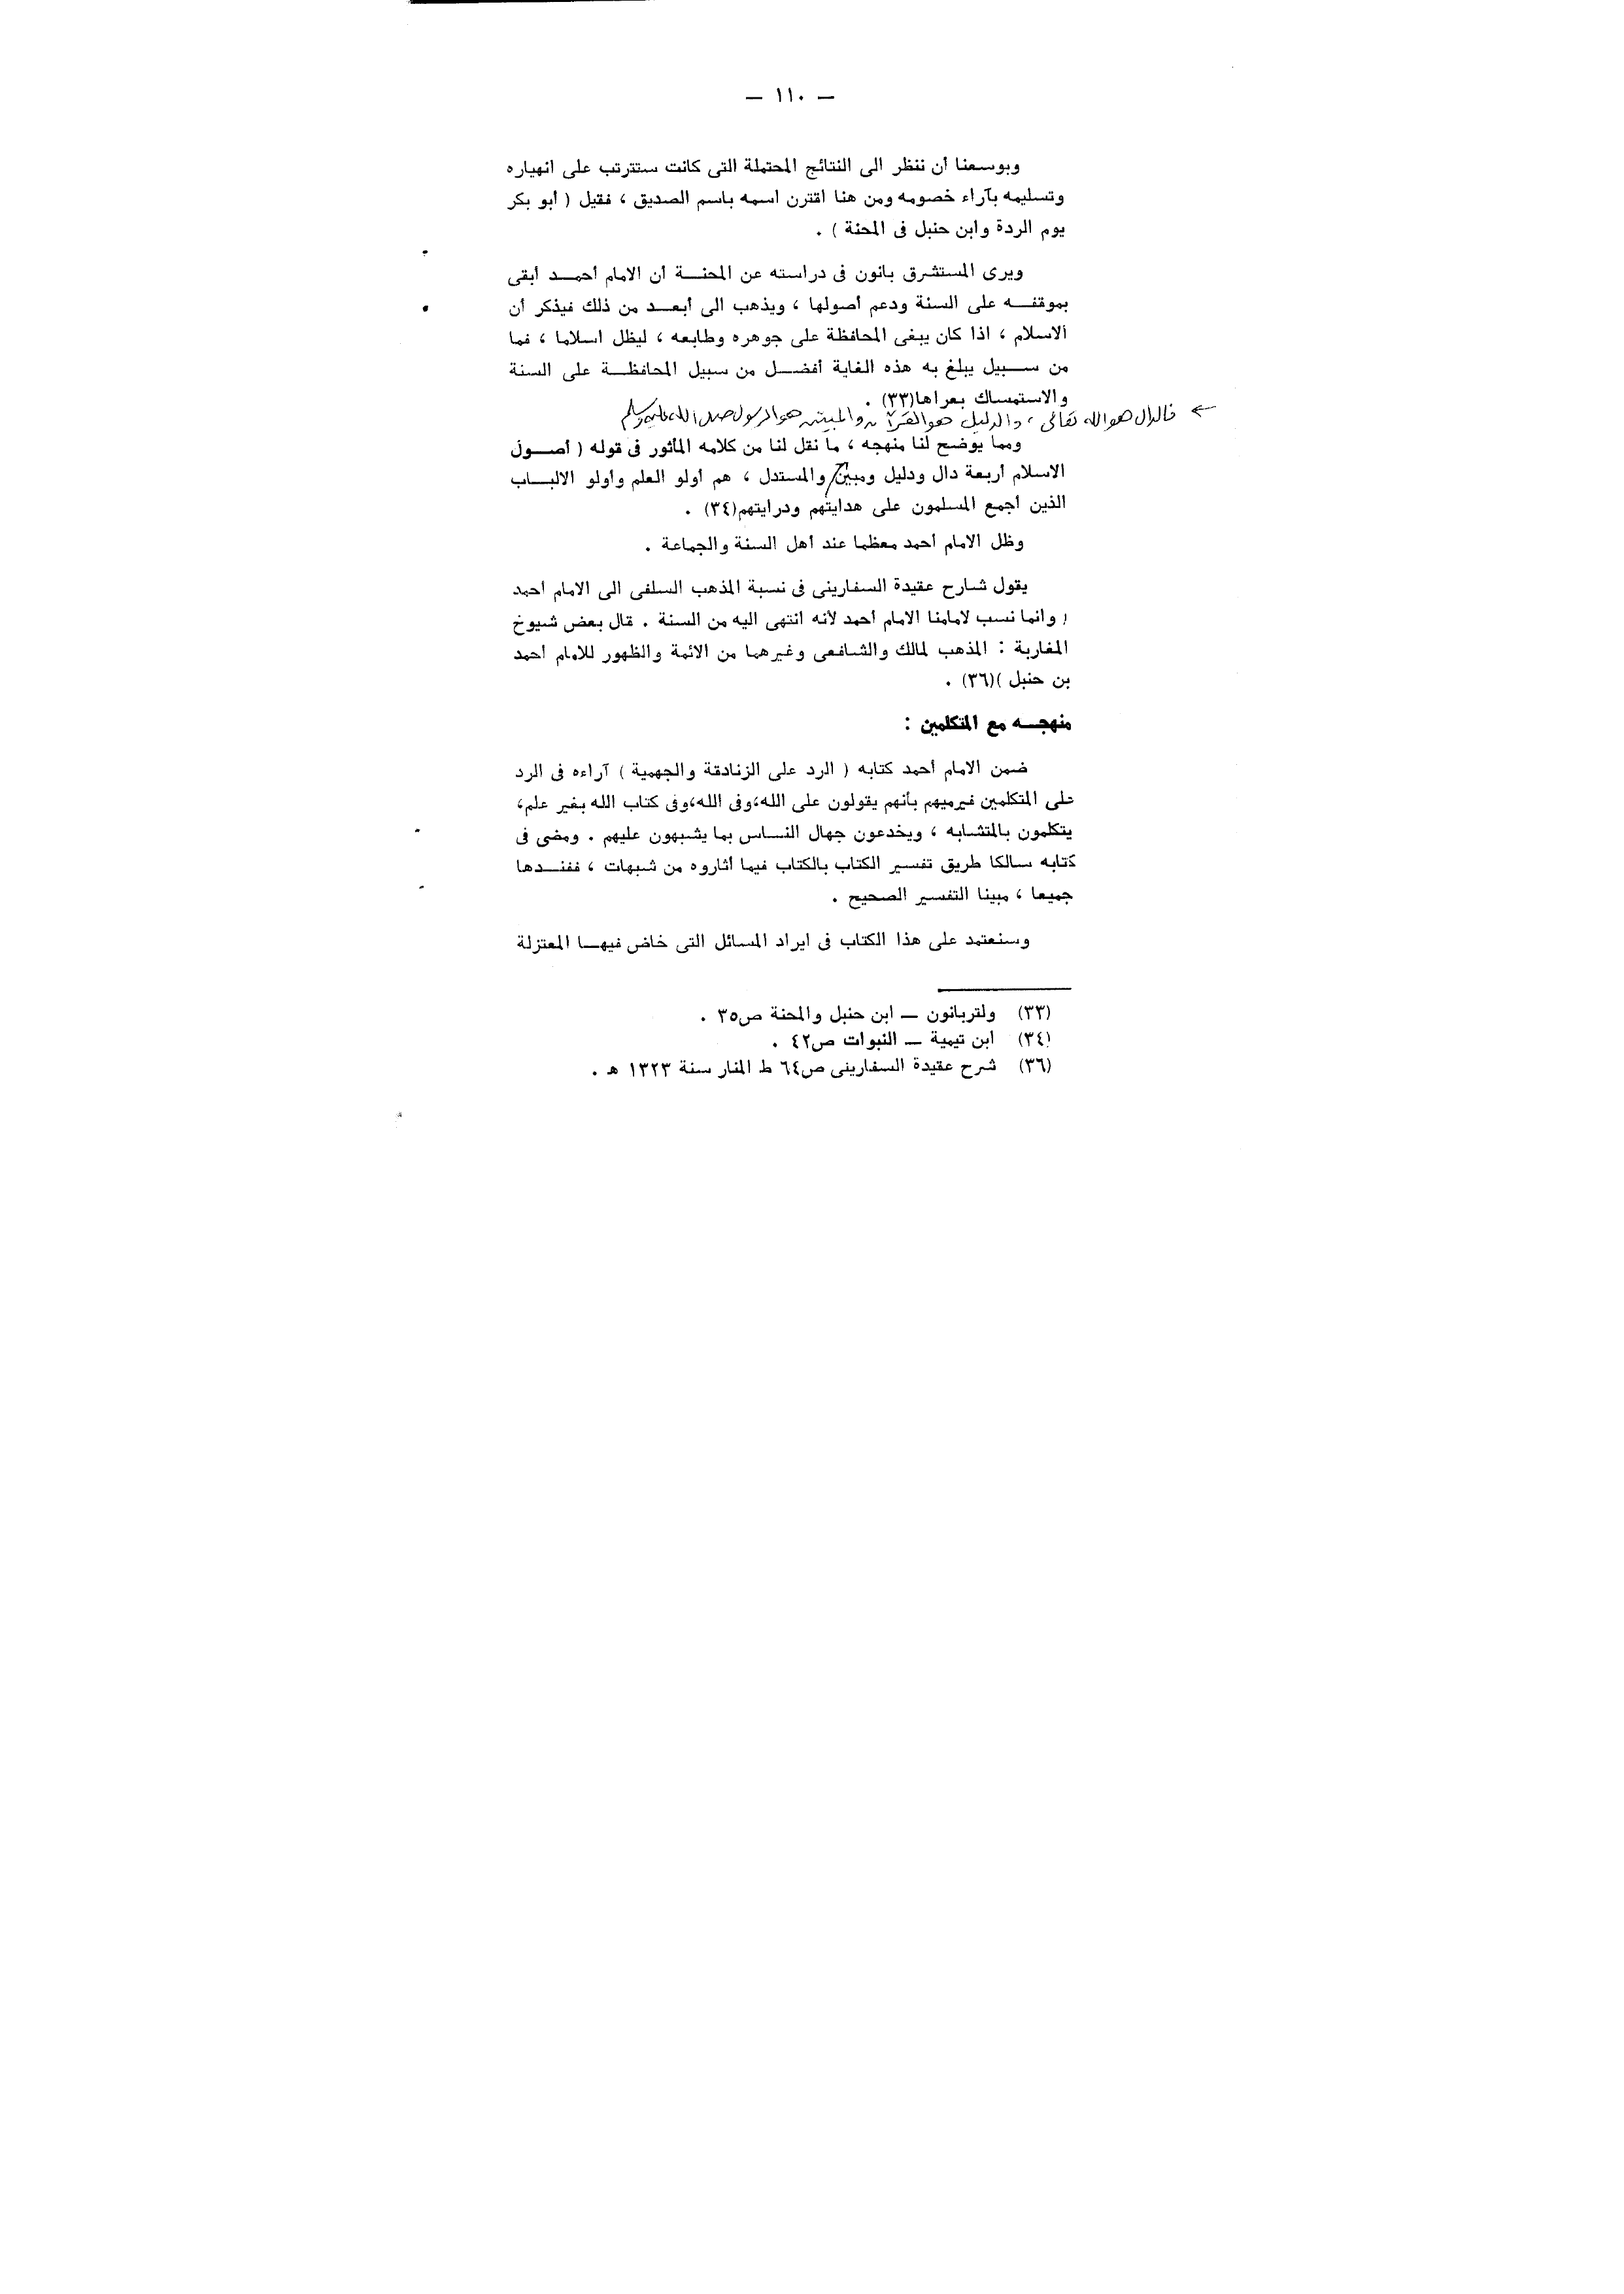 — ١١٠ —
وبوسعنا أن ننظر الى النتائج المحتملة التى كانت ستترتب على انهياره
وتسليمه بآراء خصومه ومن هنا اقترن اسمه باسم الصديق ، فقيل ( أبو بكر
يوم الردة وابن حنبل فى المحنة ) .
ويرى المستشرق باتون فى دراسته عن المحنـــة أن الامام أحمـــد أبقى
بموقفـــه على السنة ودعم أصولها ، ويذهب الى أبعـــد من ذلك فيذكر أن
الاسلام ، اذا كان يبغى المحافظة على جوهره وطابعه ، ليظل اسلاما ، فما
من ســـبيل يبلغ به هذه الغاية أفضـــل من سبيل المحافظـــة على السنة
والاستمساك بعراها(٣٣) .
← فالدال هو الله تعالى ، والدليل هو القرآن والمبين هو الرسول صلى الله عليه وسلم
ومما يوضح لنا منهجه ، ما نقل لنا من كلامه المأثور فى قوله ( أصـــول
الاسلام أربعة دال ودليل ومبين والمستدل ، هم أولو العلم وأولو الالبـــاب
الذين أجمع المسلمون على هدايتهم ودرايتهم(٣٤) .
وظل الامام أحمد معظما عند أهل السنة والجماعة .
يقول شارح عقيدة السفارينى فى نسبة المذهب السلفى الى الامام أحمد
( وانما نسب لامامنا الامام أحمد لأنه انتهى اليه من السنة . قال بعض شيوخ
المغاربة : المذهب لمالك والشافعى وغيرهما من الائمة والظهور للامام أحمد
بن حنبل )(٣٦) .
منهجـــه مع المتكلمين :
ضمن الامام أحمد كتابه ( الرد على الزنادقة والجهمية ) آراءه فى الرد
على المتكلمين فيرميهم بأنهم يقولون على الله،وفى الله،وفى كتاب الله بغير علم،
يتكلمون بالمتشابه ، ويخدعون جهال النـــاس بما يشبهون عليهم . ومضى فى
كتابه سالكا طريق تفسير الكتاب بالكتاب فيما أثاروه من شبهات ، ففنـــدها
جميعا ، مبينا التفسير الصحيح .
وسنعتمد على هذا الكتاب فى ايراد المسائل التى خاض فيهـــا المعتزلة
(٣٣) ولترباتون — ابن حنبل والمحنة ص٣٥ .
(٣٤) ابن تيمية — النبوات ص٤٢ .
(٣٦) شرح عقيدة السفارينى ص٦٤ ط المنار سنة ١٣٢٣ هـ .